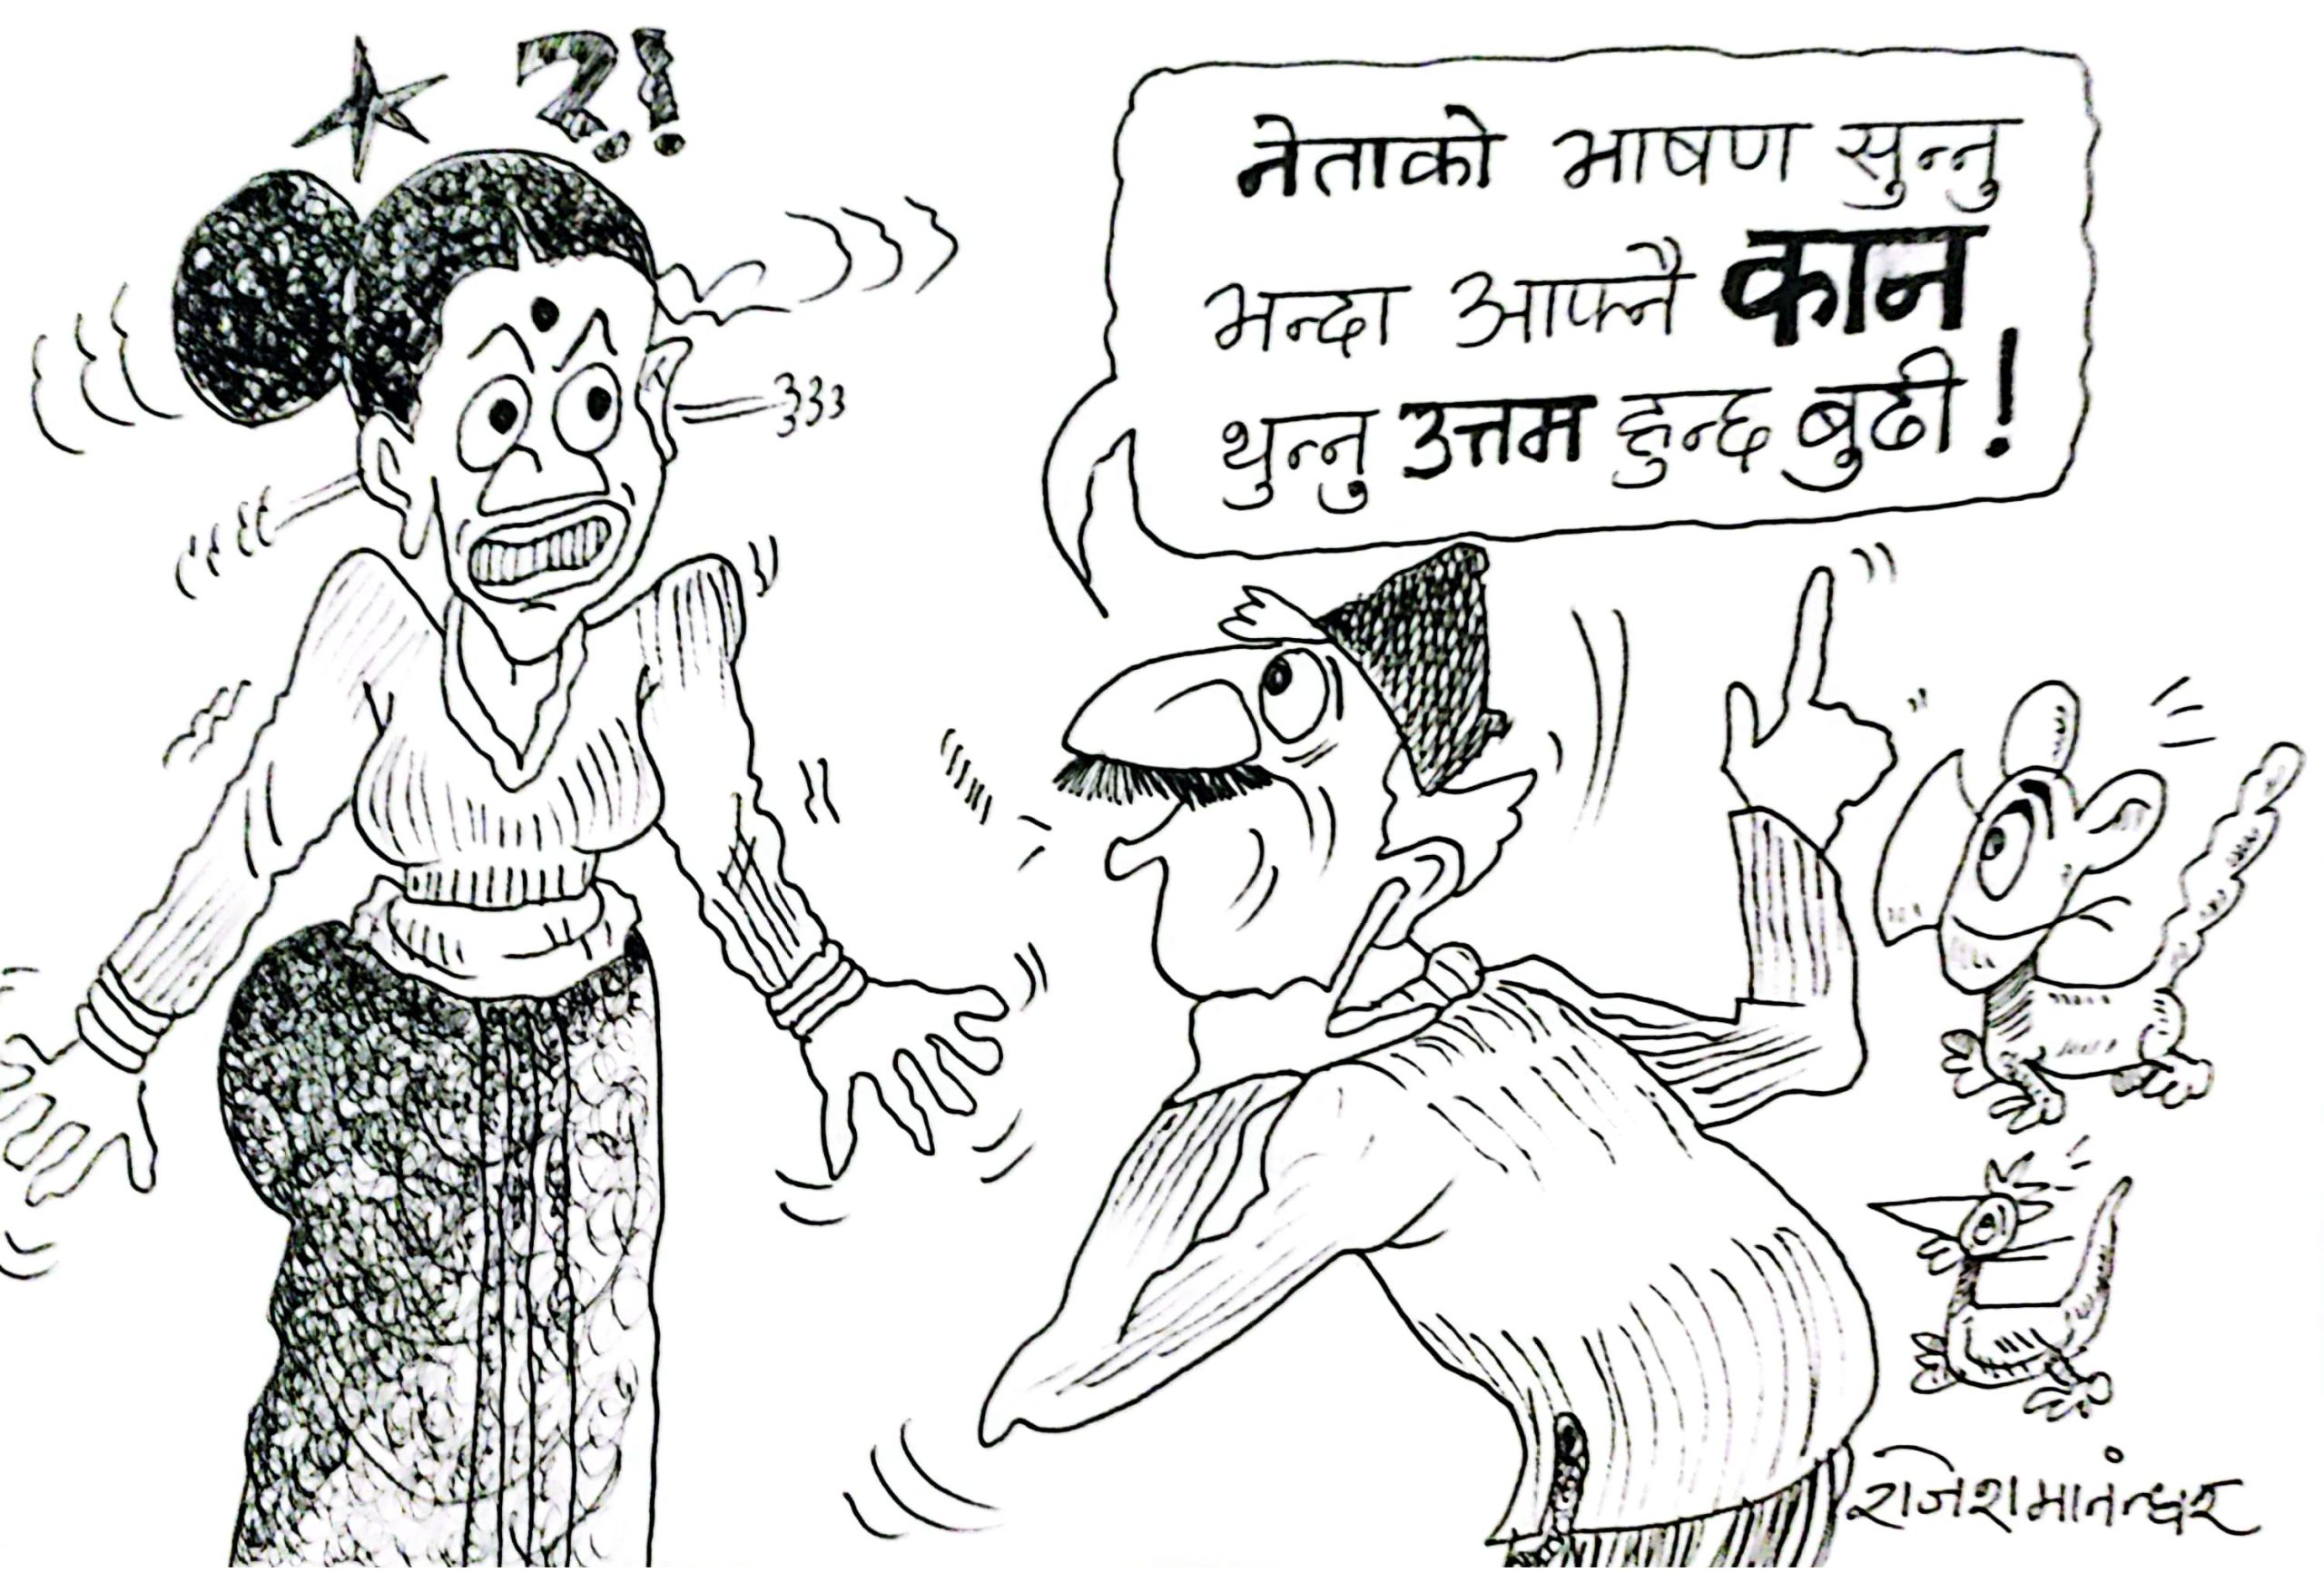 ?!
नेताको भाषण सुन्नु
भन्दा आफ्नै कान
थुन्नु उत्तम हुन्छ बुढी!
राजेश मानन्धर